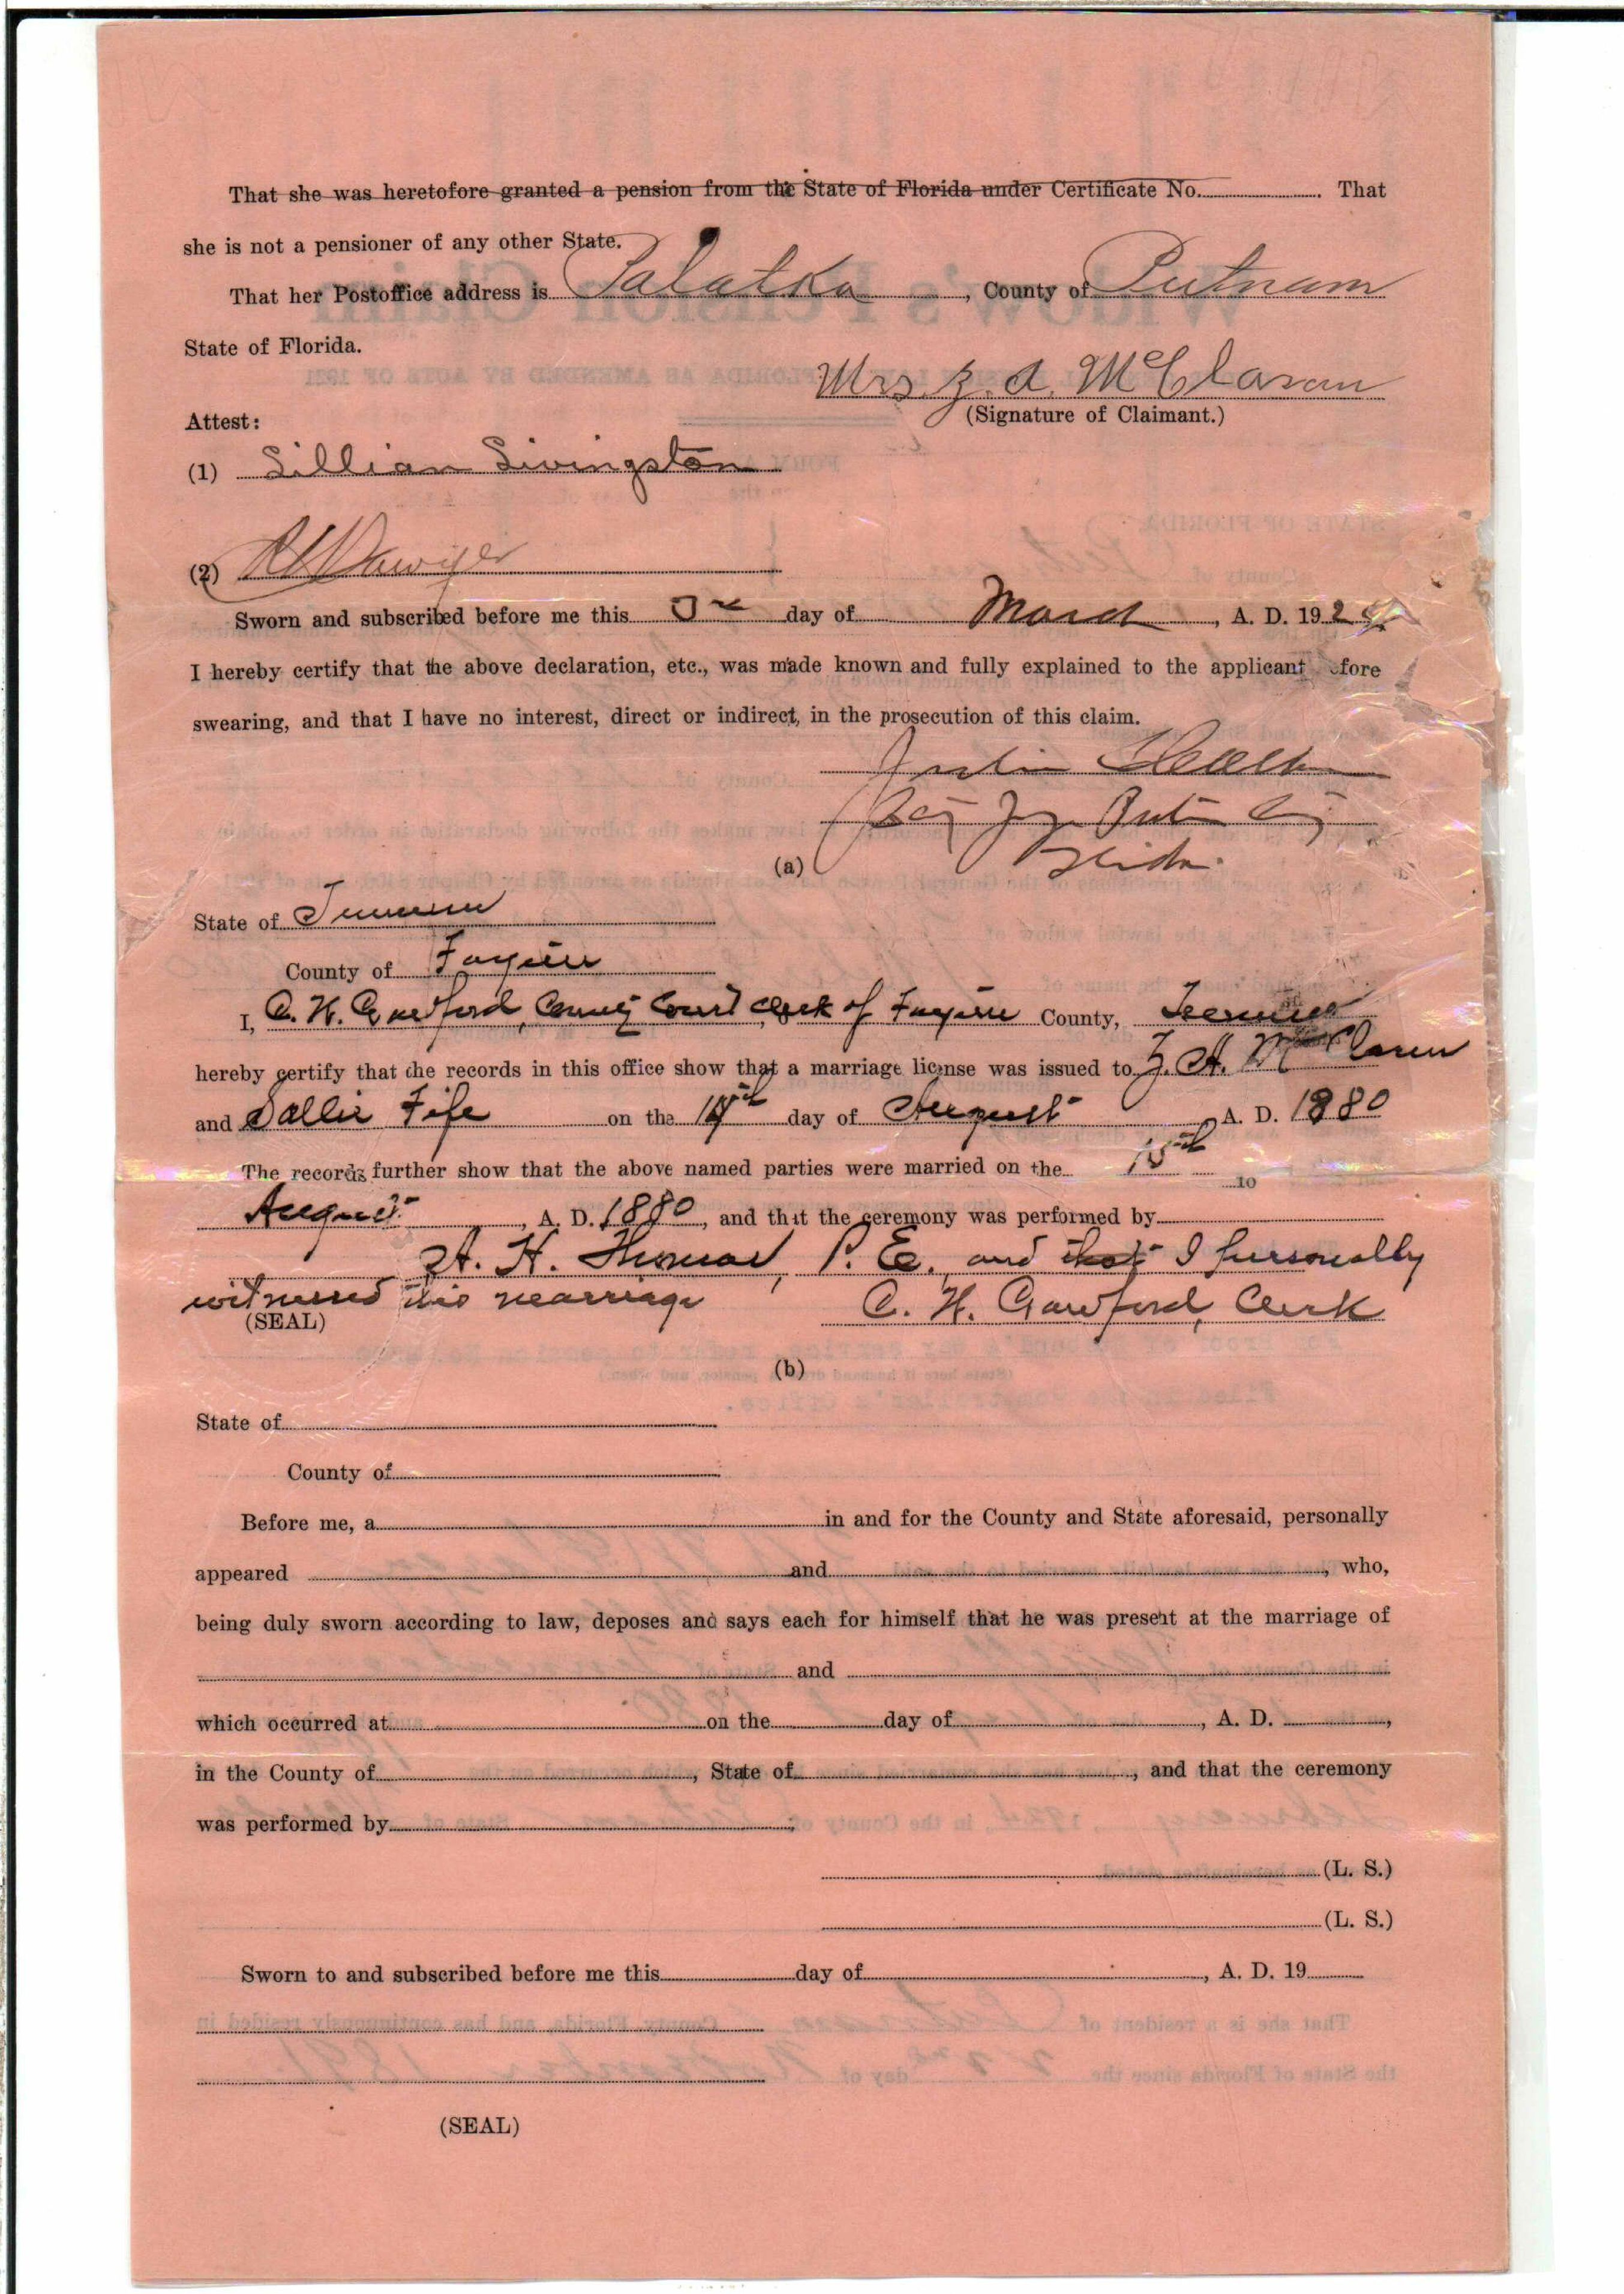 That she was heretofore granted a pension from the State of Florida under Certificate No. . That
she is not a pensioner of any other State.
That her Postoffice address is Palatka, County of Putnam
State of Florida.
Mrs Z. A. McClaran
Attest: (Signature of Claimant.)
(1) Lillian Livingston
(2)
Sworn and subscribed before me this 3rd day of March, A. D. 192
I hereby certify that the above declaration, etc., was made known and fully explained to the applicant efore
swearing, and that I have no interest, direct or indirect, in the prosecution of this claim.
(a)
State of Tennessee
County of Fayette
I, C. H. Crawford, County Court Clerk of Fayette County, Tennessee
hereby certify that the records in this office show that a marriage license was issued to Z. A. McClaren
and Sallie Fife on the day of August A. D. 1880
The records further show that the above named parties were married on the 15th to
August, A. D. 1880, and that the ceremony was performed by
A. H. Thomas, P. E., and that I personally
witnessed this marriage C. H. Crawford, Clerk
(SEAL)
(b)
State of
County of
Before me, a in and for the County and State aforesaid, personally
appeared and , who,
being duly sworn according to law, deposes and says each for himself that he was present at the marriage of
and
which occurred at on the day of , A. D. ,
in the County of , State of , and that the ceremony
was performed by ;
(L. S.)
(L. S.)
Sworn to and subscribed before me this day of , A. D. 19
(SEAL)